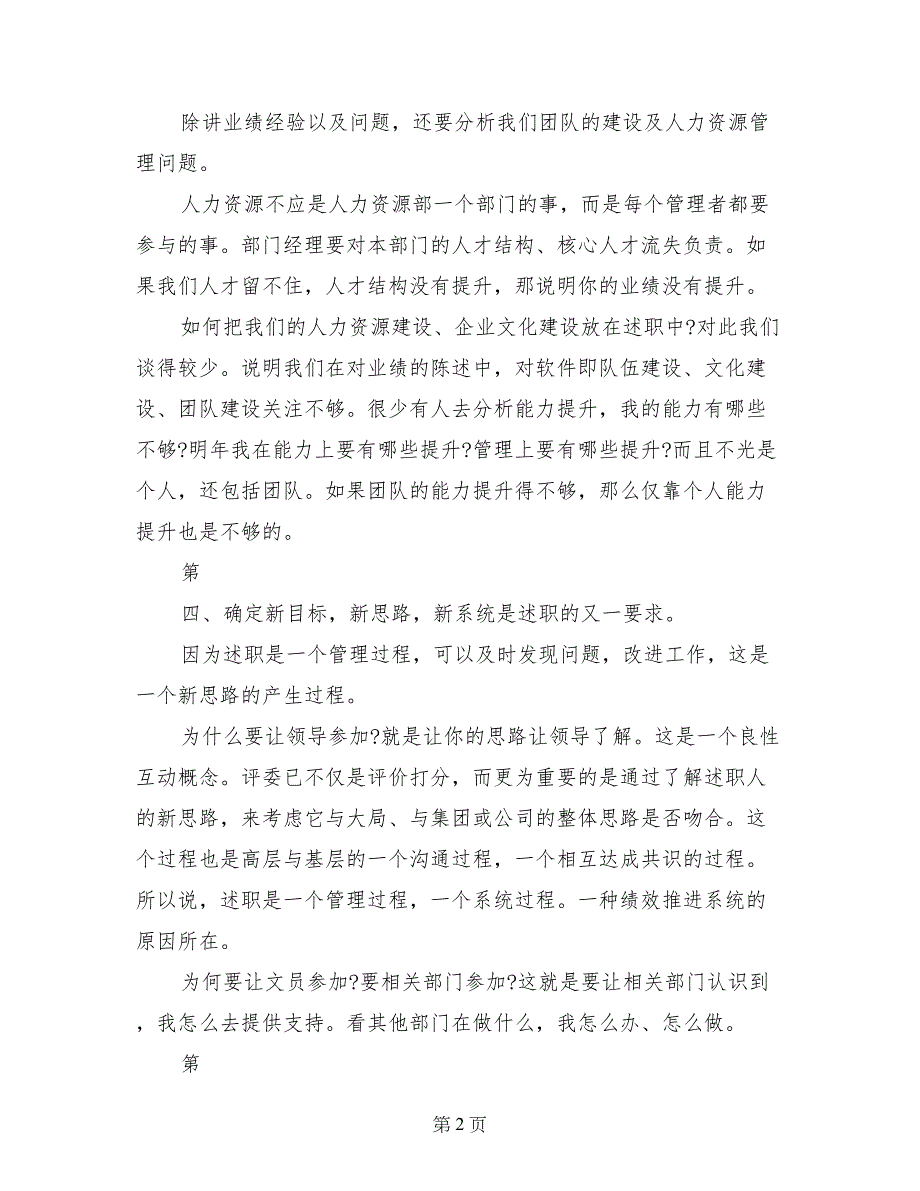 除讲业绩经验以及问题，还要分析我们团队的建设及人力资源管
理问题。
人力资源不应是人力资源部一个部门的事，而是每个管理者都要
参与的事。部门经理要对本部门的人才结构、核心人才流失负责。如
果我们人才留不住，人才结构没有提升，那说明你的业绩没有提升。
如何把我们的人力资源建设、企业文化建设放在述职中?对此我们
谈得较少。说明我们在对业绩的陈述中，对软件即队伍建设、文化建
设、团队建设关注不够。很少有人去分析能力提升，我的能力有哪些
不够?明年我在能力上要有哪些提升?管理上要有哪些提升?而且不光是
个人，还包括团队。如果团队的能力提升得不够，那么仅靠个人能力
提升也是不够的。
第
四、确定新目标，新思路，新系统是述职的又一要求。
因为述职是一个管理过程，可以及时发现问题，改进工作，这是
一个新思路的产生过程。
为什么要让领导参加?就是让你的思路让领导了解。这是一个良性
互动概念。评委已不仅是评价打分，而更为重要的是通过了解述职人
的新思路，来考虑它与大局、与集团或公司的整体思路是否吻合。这
个过程也是高层与基层的一个沟通过程，一个相互达成共识的过程。
所以说，述职是一个管理过程，一个系统过程。一种绩效推进系统的
原因所在。
为何要让文员参加?要相关部门参加?这就是要让相关部门认识到
，我怎么去提供支持。看其他部门在做什么，我怎么办、怎么做。
第
第 2 页